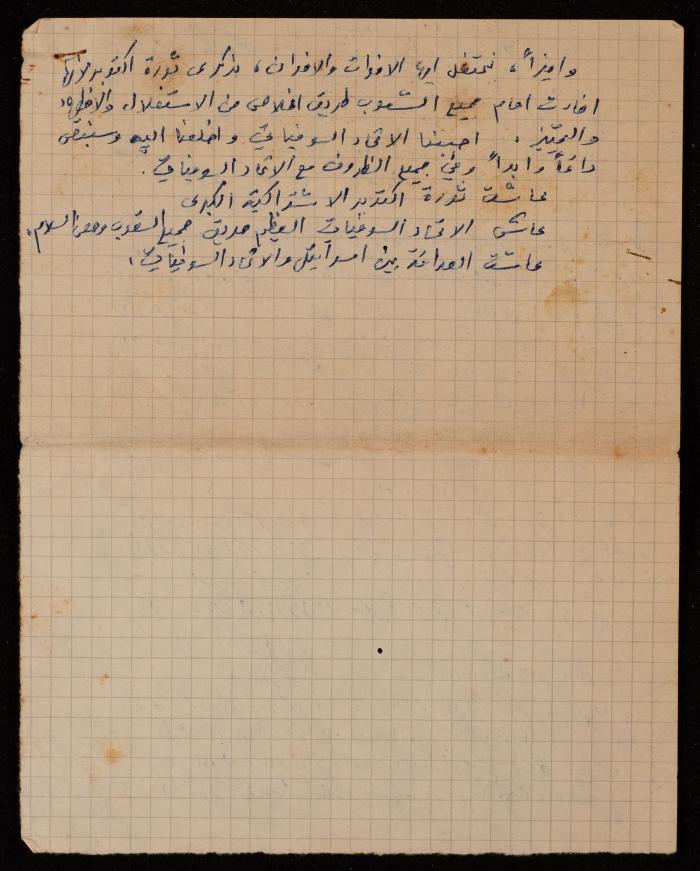 واخيراً، نحتفل ايها الاخوات والاخوان، بذكرى ثورة اكتوبر لانها
انارت امام جميع الشعوب طريق الخلاص من الاستغلال والاضطهاد
والتمييز. احببنا الاتحاد السوفياتي واخلصنا اليه وسنبقى
دائماً وابداً وفي جميع الظروف مع الاتحاد السوفياتي.
عاشت ثورة اكتوبر الاشتراكية الكبرى
عاش الاتحاد السوفياتي العظيم صديق جميع الشعوب وحصن السلام.
عاشت الصداقة بين اسرائيل والاتحاد السوفياتي.